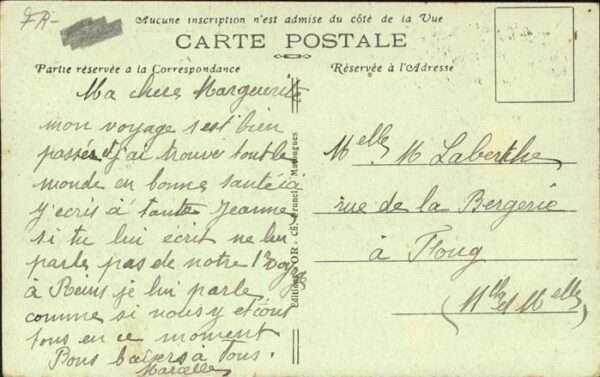 FR-
Aucune inscription n'est admise du côté de la Vue
CARTE POSTALE
Partie réservée a la Correspondance
Réservée à l'Adresse
Ma chere Marguerite
mon voyage s'est bien
passé et j'ai trouver tout le
monde en bonne santé
j'ecris à tante Jeanne
si tu lui écrit ne lui
parle pas de notre
à Reims je lui parle
comme si nous y etions
tous en ce moment
Bons baisers à tous.
Marcelle
Melle M Laberthe
rue de la Bergerie
à Floug
(Mlle et Melle)
OR - Ch. Brunel, Matougues